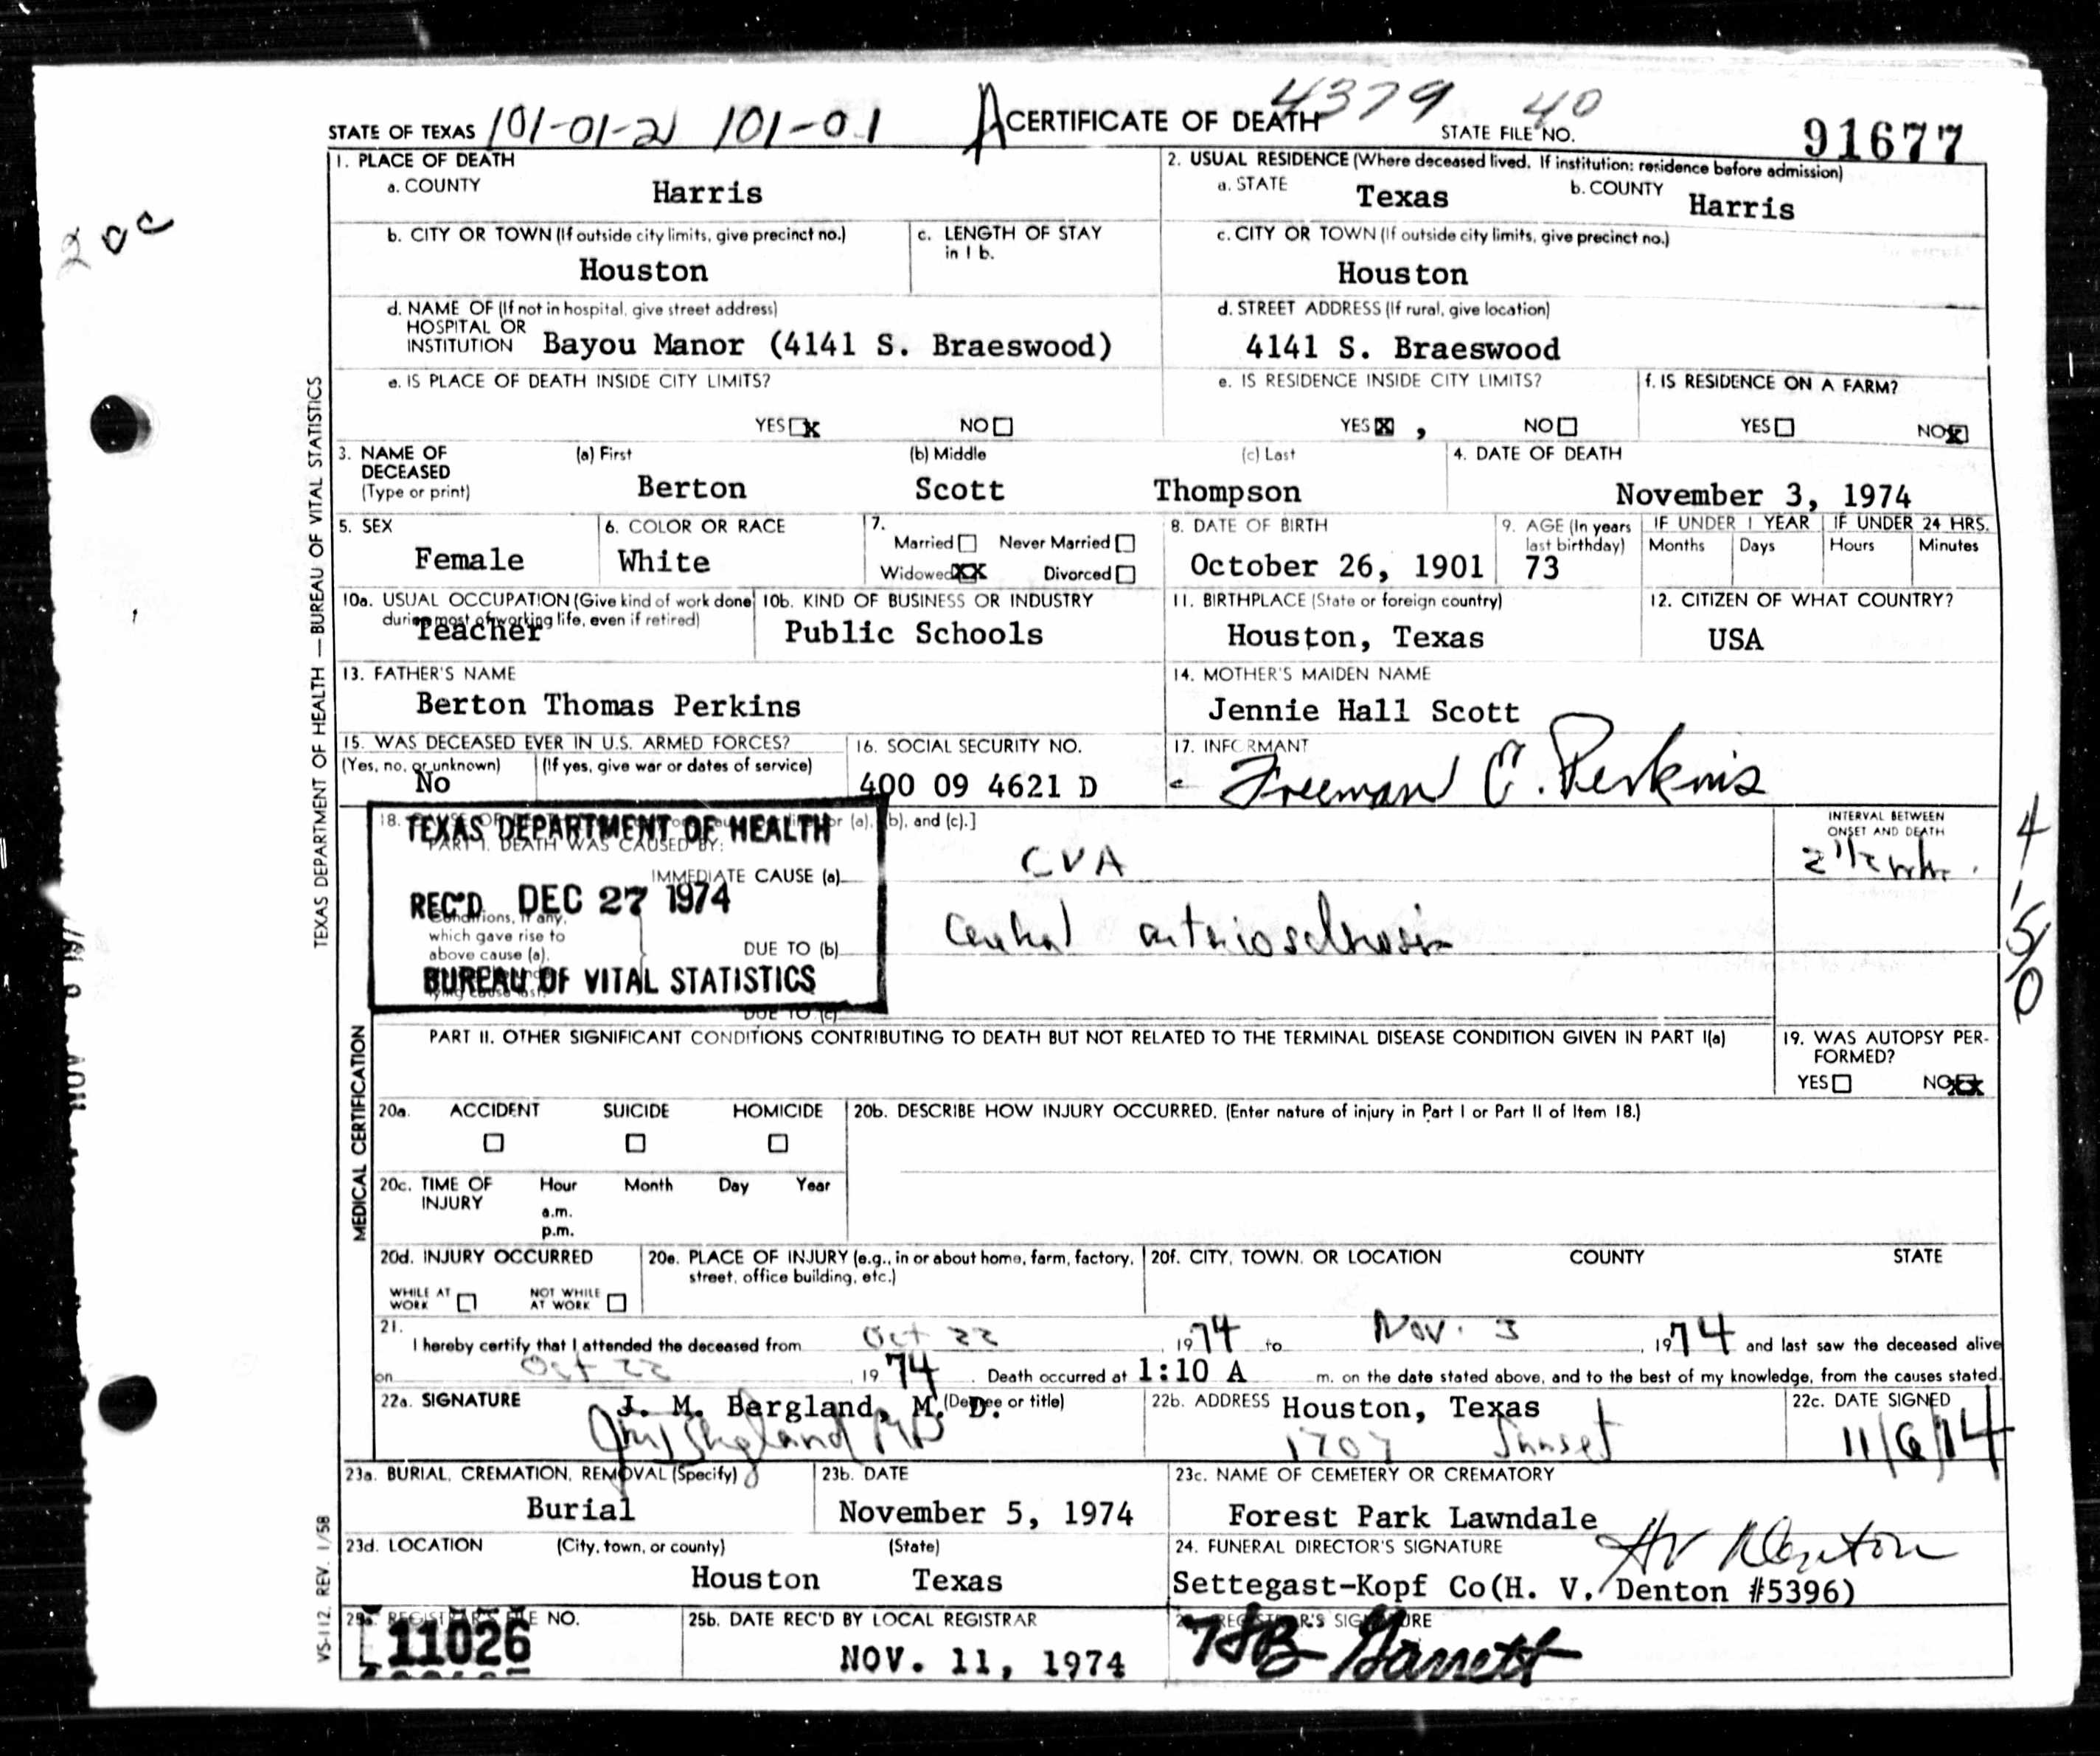 STATE OF TEXAS 101-01-2 101-01 A CERTIFICATE OF DEATH 4379 40 STATE FILE NO. 91677
1. PLACE OF DEATH
a. COUNTY Harris
2. USUAL RESIDENCE (Where deceased lived. If institution: residence before admission)
a. STATE Texas b. COUNTY Harris
b. CITY OR TOWN (If outside city limits, give precinct no.) Houston
c. LENGTH OF STAY in 1 b.
c. CITY OR TOWN (If outside city limits, give precinct no.) Houston
d. NAME OF (If not in hospital, give street address)
HOSPITAL OR
INSTITUTION Bayou Manor (4141 S. Braeswood)
d. STREET ADDRESS (If rural, give location)
4141 S. Braeswood
e. IS PLACE OF DEATH INSIDE CITY LIMITS?
YES X NO
e. IS RESIDENCE INSIDE CITY LIMITS?
YES X , NO
f. IS RESIDENCE ON A FARM?
YES NO X
3. NAME OF DECEASED (Type or print)
(a) First Berton (b) Middle Scott (c) Last Thompson
4. DATE OF DEATH
November 3, 1974
5. SEX
Female
6. COLOR OR RACE
White
7. Married Never Married
Widowed XX Divorced
8. DATE OF BIRTH
October 26, 1901
9. AGE (In years last birthday)
73
IF UNDER 1 YEAR
Months Days
IF UNDER 24 HRS.
Hours Minutes
10a. USUAL OCCUPATION (Give kind of work done
during most of working life, even if retired)
Teacher
10b. KIND OF BUSINESS OR INDUSTRY
Public Schools
11. BIRTHPLACE (State or foreign country)
Houston, Texas
12. CITIZEN OF WHAT COUNTRY?
USA
13. FATHER'S NAME
Berton Thomas Perkins
14. MOTHER'S MAIDEN NAME
Jennie Hall Scott
15. WAS DECEASED EVER IN U.S. ARMED FORCES?
(Yes, no, or unknown) (If yes, give war or dates of service)
No
16. SOCIAL SECURITY NO.
400 09 4621 D
17. INFORMANT
Freeman C. Perkins
18. (a), (b), and (c).]
TEXAS DEPARTMENT OF HEALTH
PART I. DEATH WAS CAUSED BY:
IMMEDIATE CAUSE (a) CVA
INTERVAL BETWEEN
ONSET AND DEATH
REC'D DEC 27 1974
Conditions, if any,
which gave rise to
above cause (a),
DUE TO (b)
BUREAU OF VITAL STATISTICS
lying cause last.
DUE TO (c)
PART II. OTHER SIGNIFICANT CONDITIONS CONTRIBUTING TO DEATH BUT NOT RELATED TO THE TERMINAL DISEASE CONDITION GIVEN IN PART I(a)
19. WAS AUTOPSY PER-
FORMED?
YES NO XX
20a. ACCIDENT SUICIDE HOMICIDE
20b. DESCRIBE HOW INJURY OCCURRED. (Enter nature of injury in Part I or Part II of Item 18.)
20c. TIME OF INJURY Hour Month Day Year
a.m.
p.m.
20d. INJURY OCCURRED
WHILE AT WORK NOT WHILE AT WORK
20e. PLACE OF INJURY (e.g., in or about home, farm, factory,
street, office building, etc.)
20f. CITY, TOWN, OR LOCATION COUNTY STATE
21.
I hereby certify that I attended the deceased from Oct 22, 1974 to Nov. 3, 1974 and last saw the deceased alive
on Oct 22 1974. Death occurred at 1:10 A m. on the date stated above, and to the best of my knowledge, from the causes stated.
22a. SIGNATURE J. M. Bergland, M. D. (Degree or title)
22b. ADDRESS Houston, Texas
1707 Sunset
22c. DATE SIGNED
11/6/74
23a. BURIAL, CREMATION, REMOVAL (Specify)
Burial
23b. DATE
November 5, 1974
23c. NAME OF CEMETERY OR CREMATORY
Forest Park Lawndale
23d. LOCATION (City, town, or county) (State)
Houston Texas
24. FUNERAL DIRECTOR'S SIGNATURE
HV Denton
Settegast-Kopf Co(H. V. Denton #5396)
25a. REGISTRAR'S FILE NO.
11026
25b. DATE REC'D BY LOCAL REGISTRAR
NOV. 11, 1974
REGISTRAR'S SIGNATURE
Garrett
TEXAS DEPARTMENT OF HEALTH — BUREAU OF VITAL STATISTICS
MEDICAL CERTIFICATION
VS-112. REV. 1/58